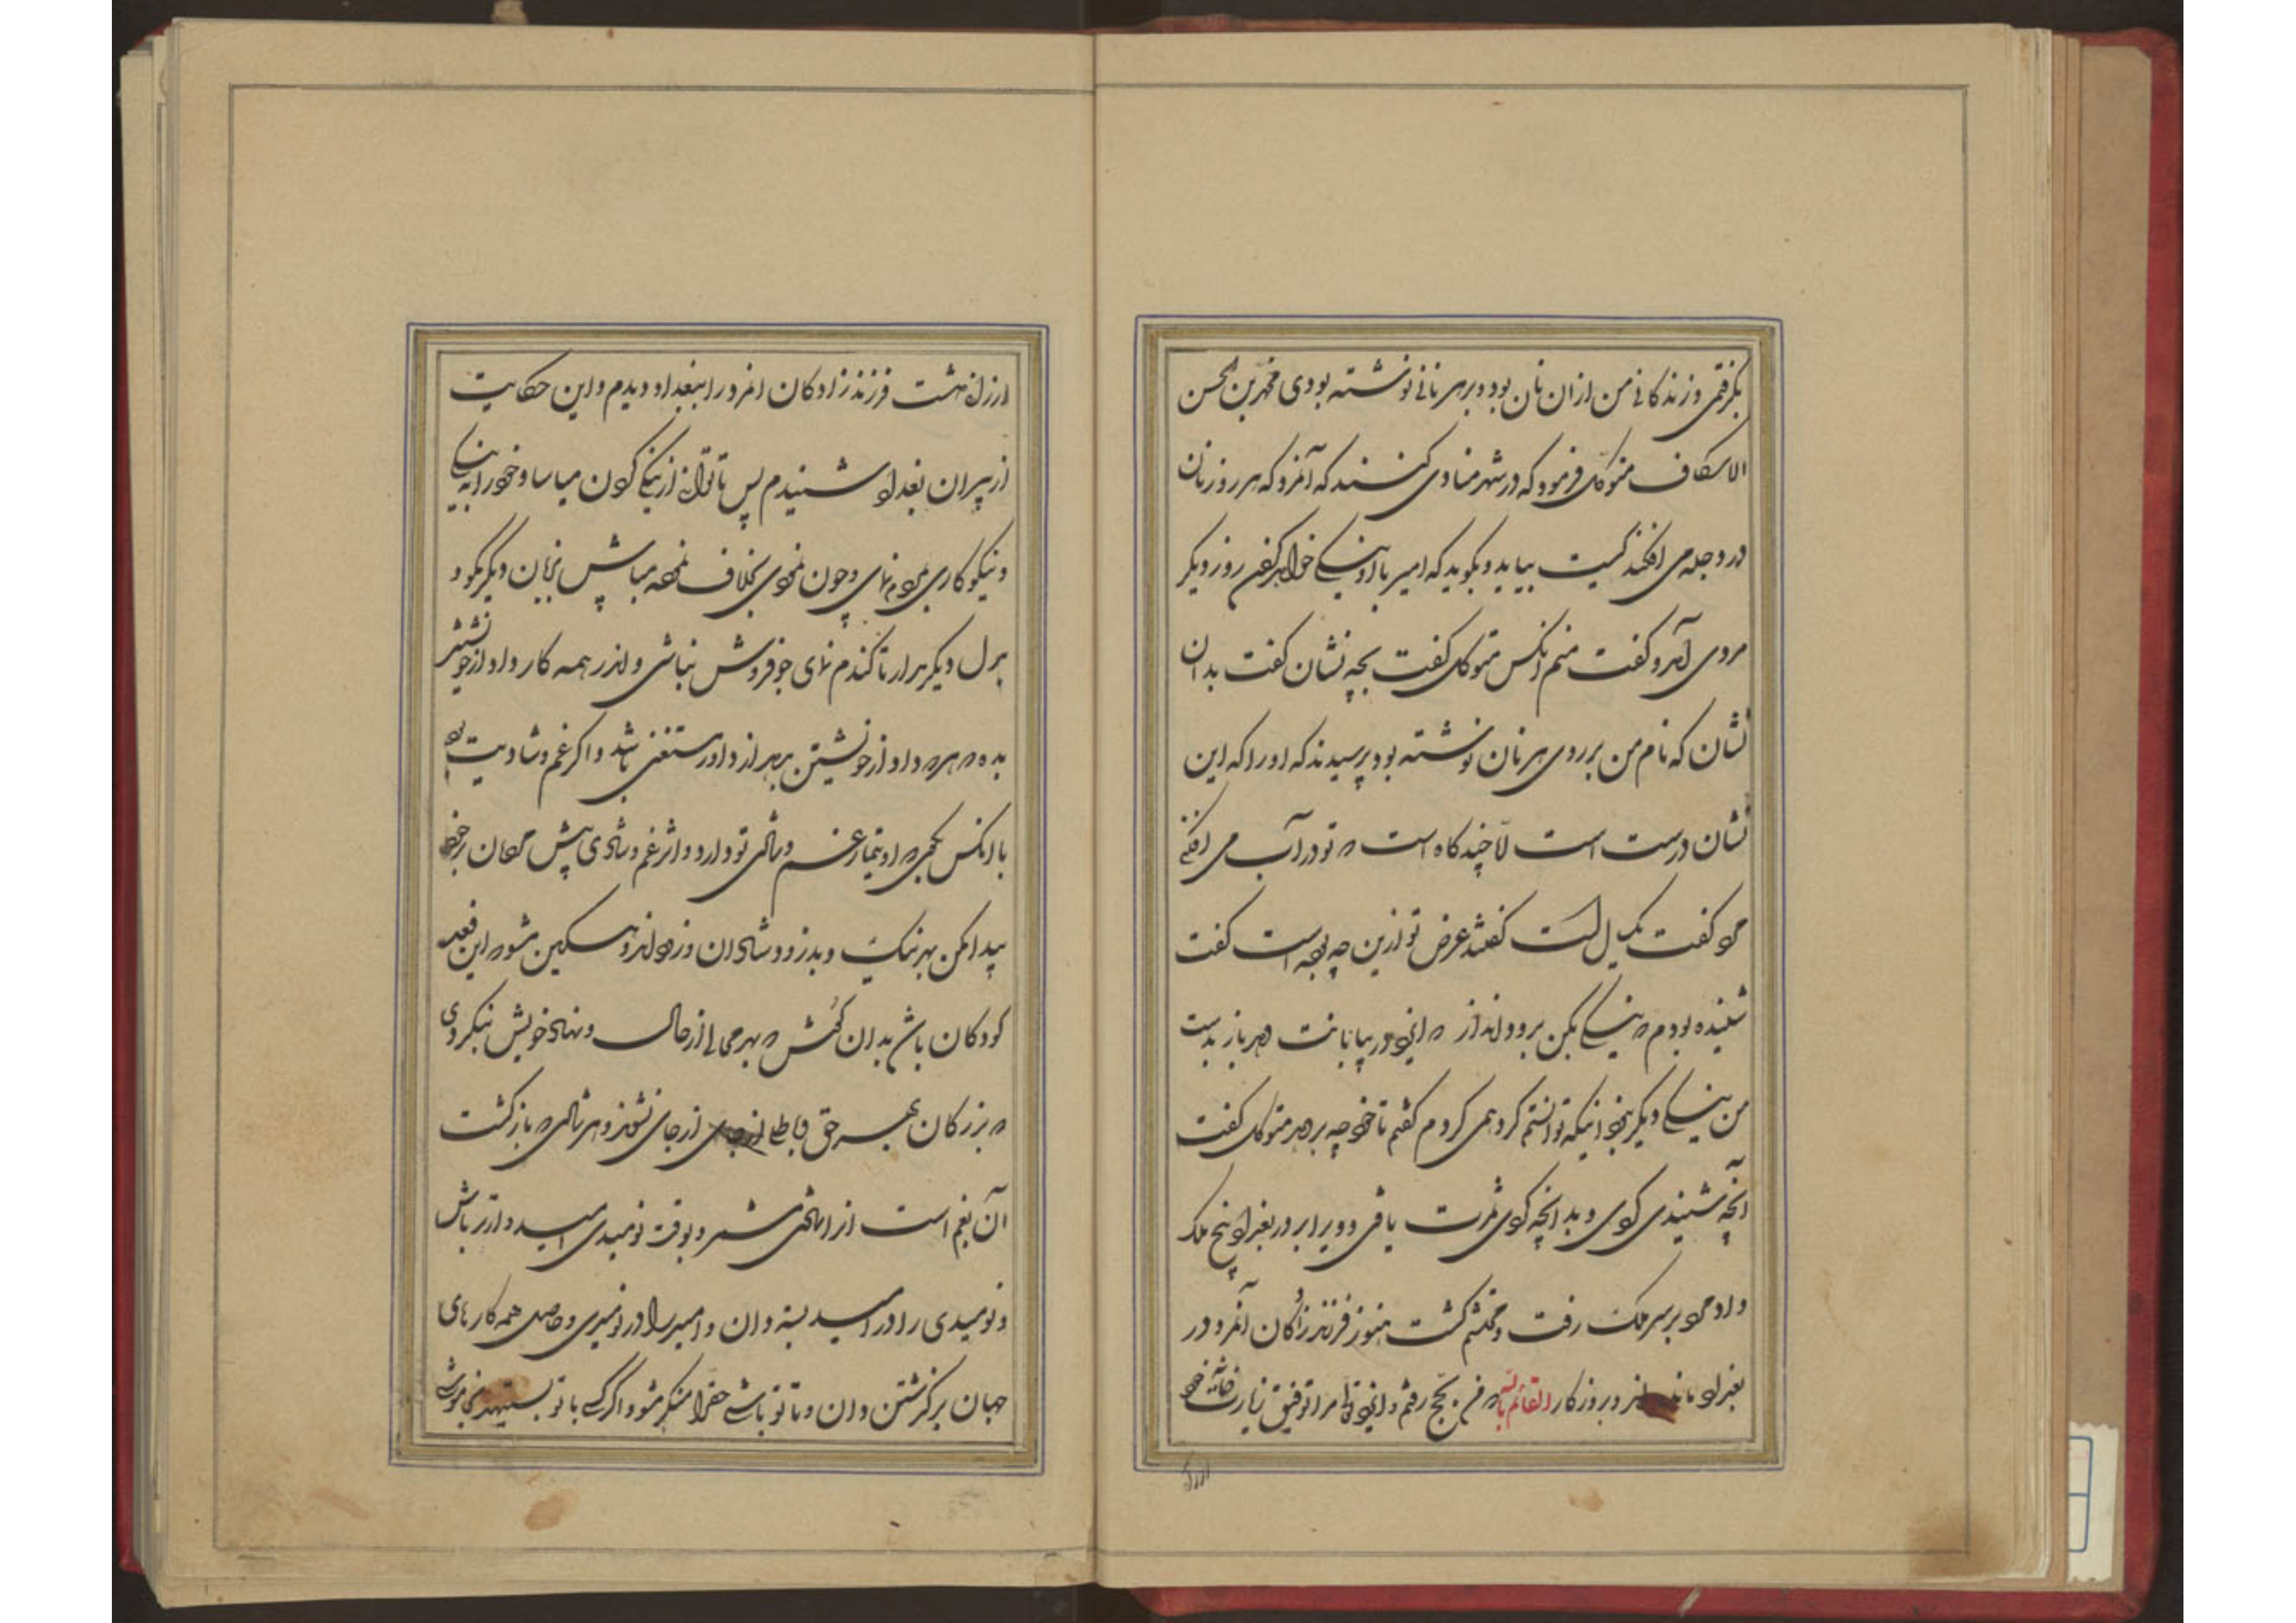 بکرفتمی وزندکانی من ازان نان بود و برهر نانی نوشته بودی محمد بن الحسن
الاسکاف متوکل فرمود که در شهر منادی کنند که آنمرد که هر روز نان
در دجله می افکند کیست بیاید و بکوید که امیر با او نیکی خواهد کردن روز دیکر
مردی آمد و کفت منم آنکس متوکل کفت بچه نشان کفت بدان
نشان که نام من بر روی هر نان نوشته بود پرسیدند که اورا که این
نشان درست است اما چند کاه است که تو در آب می افکنی
مرد کفت یک سال است کفتند غرض تو ازین چه بوده است کفت
شنیده بودم که نیکی بکن برود انداز که ایزد در بیابانت دهد باز بدست
من نیکی دیکر بجز آنکه توانستم کرد همی کردم کفتم تا خود چه بر دهد متوکل کفت
آنچه شنیدی کردی و بدانچه کردی ثمرت یافتی و ویرا بر در بغداد پنج ملک
داد مرد بر سر ملک رفت و محتشم کشت هنوز فرزند زادکان آنمرد در
بغداد مانده اند و بروزکار القائم بالله که من بحج رفتم و ایزد تعالی مرا توفیق زیارت خانه خود
ارزانی داشت فرزند زادکان انمرد را ببغداد دیدم و این حکایت
از پیران بغداد شنیدم پس تا توانی از نیکی کردن میاسا و خود را به نیکی
و نیکوکاری بمردم نمای و چون نمودی بخلاف نموده مباش بزبان دیکر مکو و
بدل دیکر مدار تا کندم نمای جو فروش نباشی و اندر همه کار داد از خویشتن
بده که هر که داد از خویشتن بدهد از داور مستغنی باشد و اکر غم و شادیت بود
با آنکس کوی که او تیمار غم و شادی تو دارد و اثر غم و شادی پیش مردمان بر خود
پیدا مکن بهر نیک و بد زود شادان و زود اندوهکین مشو که این فعل
کودکان باشد بدان کوش که بهر محالی از حال و نهاد خویش نکردی
که بزرکان بهر حق و باطلی از جای نشوند و هر شادی که بازکشت
آن بغم است از ان شادی مشمر و بوقت نومیدی امیدوارتر باش
و نومیدی را در امید بسته دان و امید را در نومیدی و حاصل همه کارهای
جهان برکذشتن دان و تا تو باشی حق را منکر مشو و اکر کسی با تو بستیهد بخاموشی